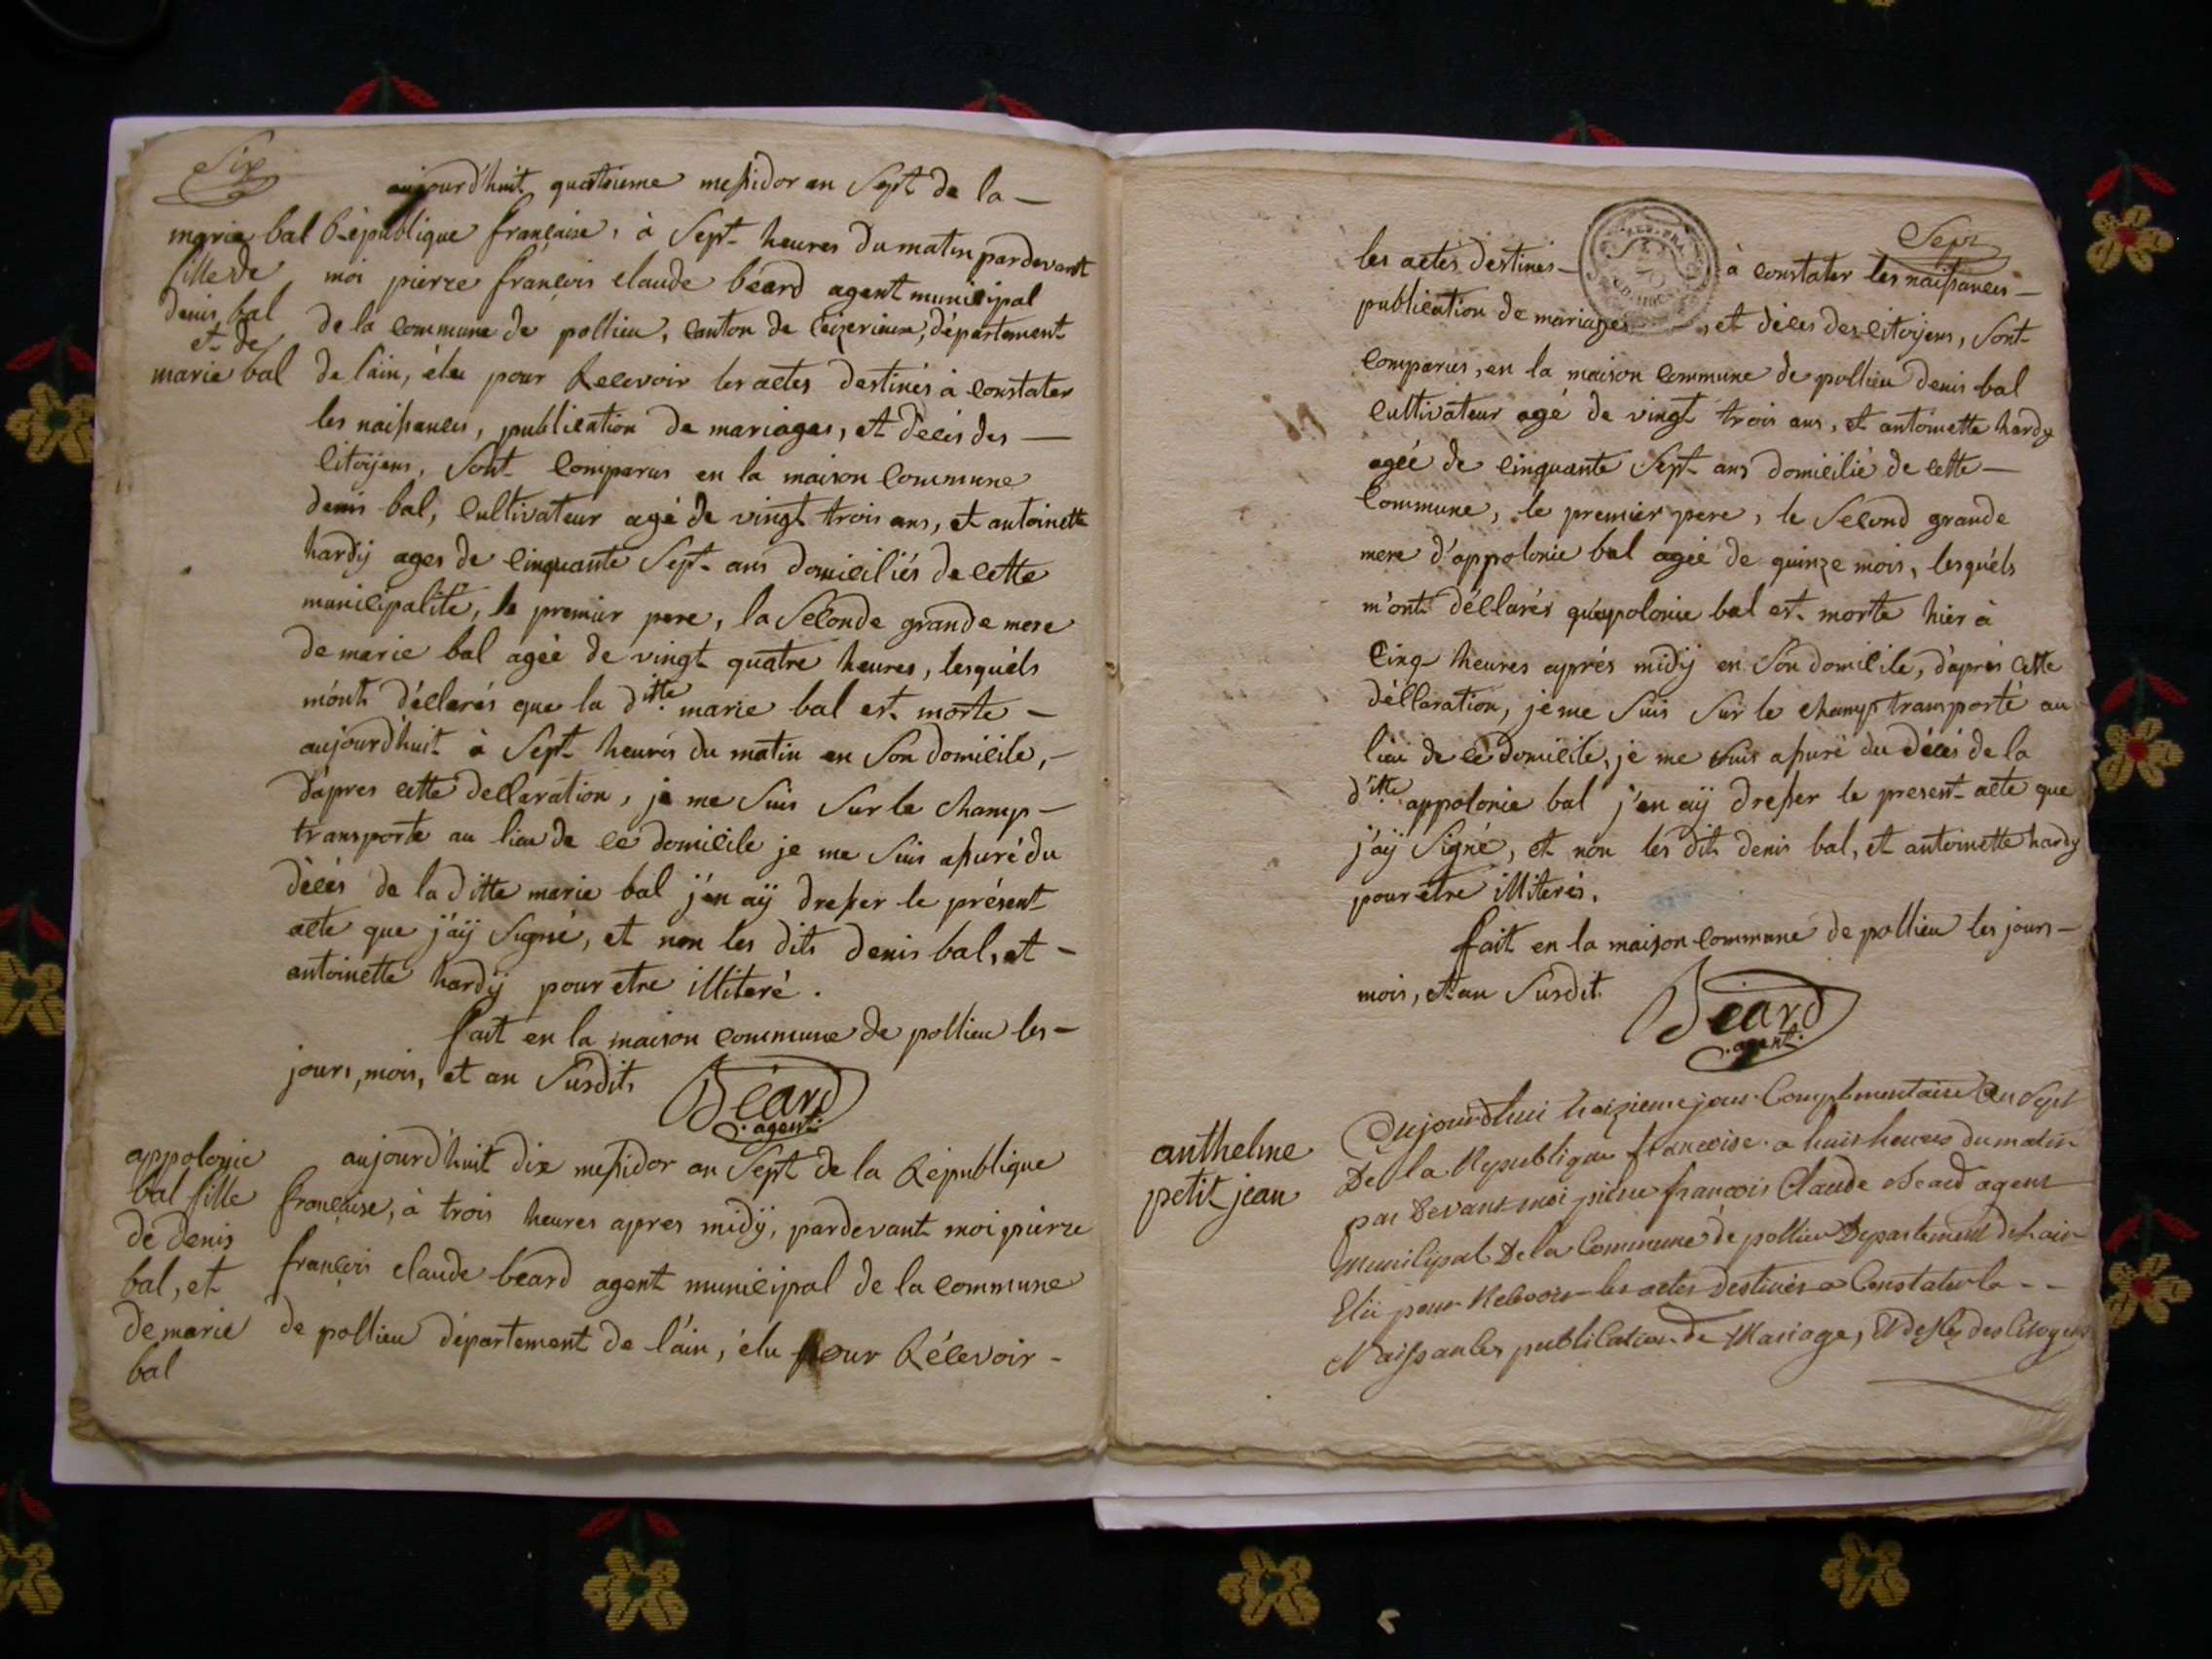 Six
aujourd'huit quatrieme messidor an Sept de la —
marie bal
fille de
denis bal
et de
marie bal
République française, à Sept heures du matin pardevant
moi pierre françois claude béard agent municipal
de la commune de pollieu, canton de Ceizerieux, département
de l'ain, élu pour Recevoir les actes destinés à constater
les naissances, publication de mariages, et décés des —
citoÿens, Sont comparus en la maison commune
denis bal, cultivateur agé de vingt trois ans, et antoinette
hardÿ ages de cinquante Sept ans domiciliés de cette
municipalité, le premier pere, la Seconde grande mere
de marie bal agée de vingt quatre heures, lesquéls
m'ont déclarés que la ditte marie bal est morte —
aujourd'huit à Sept heures du matin en Son domicile, —
d'apres cette declaration, je me Suis Sur le champ —
transporte au lieu de ce domicile je me Suis assuré du
décés de la ditte marie bal j'en aÿ dresser le présent
acte que j'aÿ Signé, et non les dits denis bal, et —
antoinette hardÿ pour etre illiteré.
fait en la maison commune de pollieu les —
jours, mois, et an Susdits
Béard
agent
appolonie
bal fille
de denis
bal, et
de marie
bal
aujourd'huit dix messidor an Sept de la République
française, à trois heures apres midÿ, pardevant moi pierre
françois claude béard agent municipal de la commune
de pollieu département de l'ain, élu pour Récevoir -
Sept
les actes destinés — à constater les naissances —
publication de mariages, et décés des citoÿens, Sont
comparus, en la maison commune de pollieu denis bal
cultivateur agé de vingt trois ans, et antoinette hardy
agée de cinquante Sept ans domicilié de cette —
commune, le premier pere, le Second grande
mere d'appolonie bal agée de quinze mois, lesquéls
m'ont déclarés qu'apolonie bal est morte hier à
cinq heures aprés midÿ en Son domicile, d'aprés cette
déclaration, je me Suis Sur le champ transporté au
lieu de ce domicile, je me Suis assuré du décés de la
ditte appolonie bal j'en aÿ dresser le present acte que
j'aÿ Signé, et non les dits denis bal, et antoinette hardy
pour etre illiterés.
fait en la maison commune de pollieu les jours —
mois, et an Susdit
Béard
agent
anthelme
petit jean
Aujourdhui troizieme jour Complementaire an Sept
De la Republique francoise a huit heures du matin
par devant moi pierre francois Claude Beard agent
municipal De la Commune de pollieu Departement de Lain
Elü pour Recevoir les actes destinés a Constater la - -
Naissances publication de Mariage, et deses des Citoyens